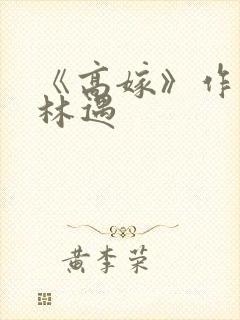 《高嫁》作
林遇
黄李荣